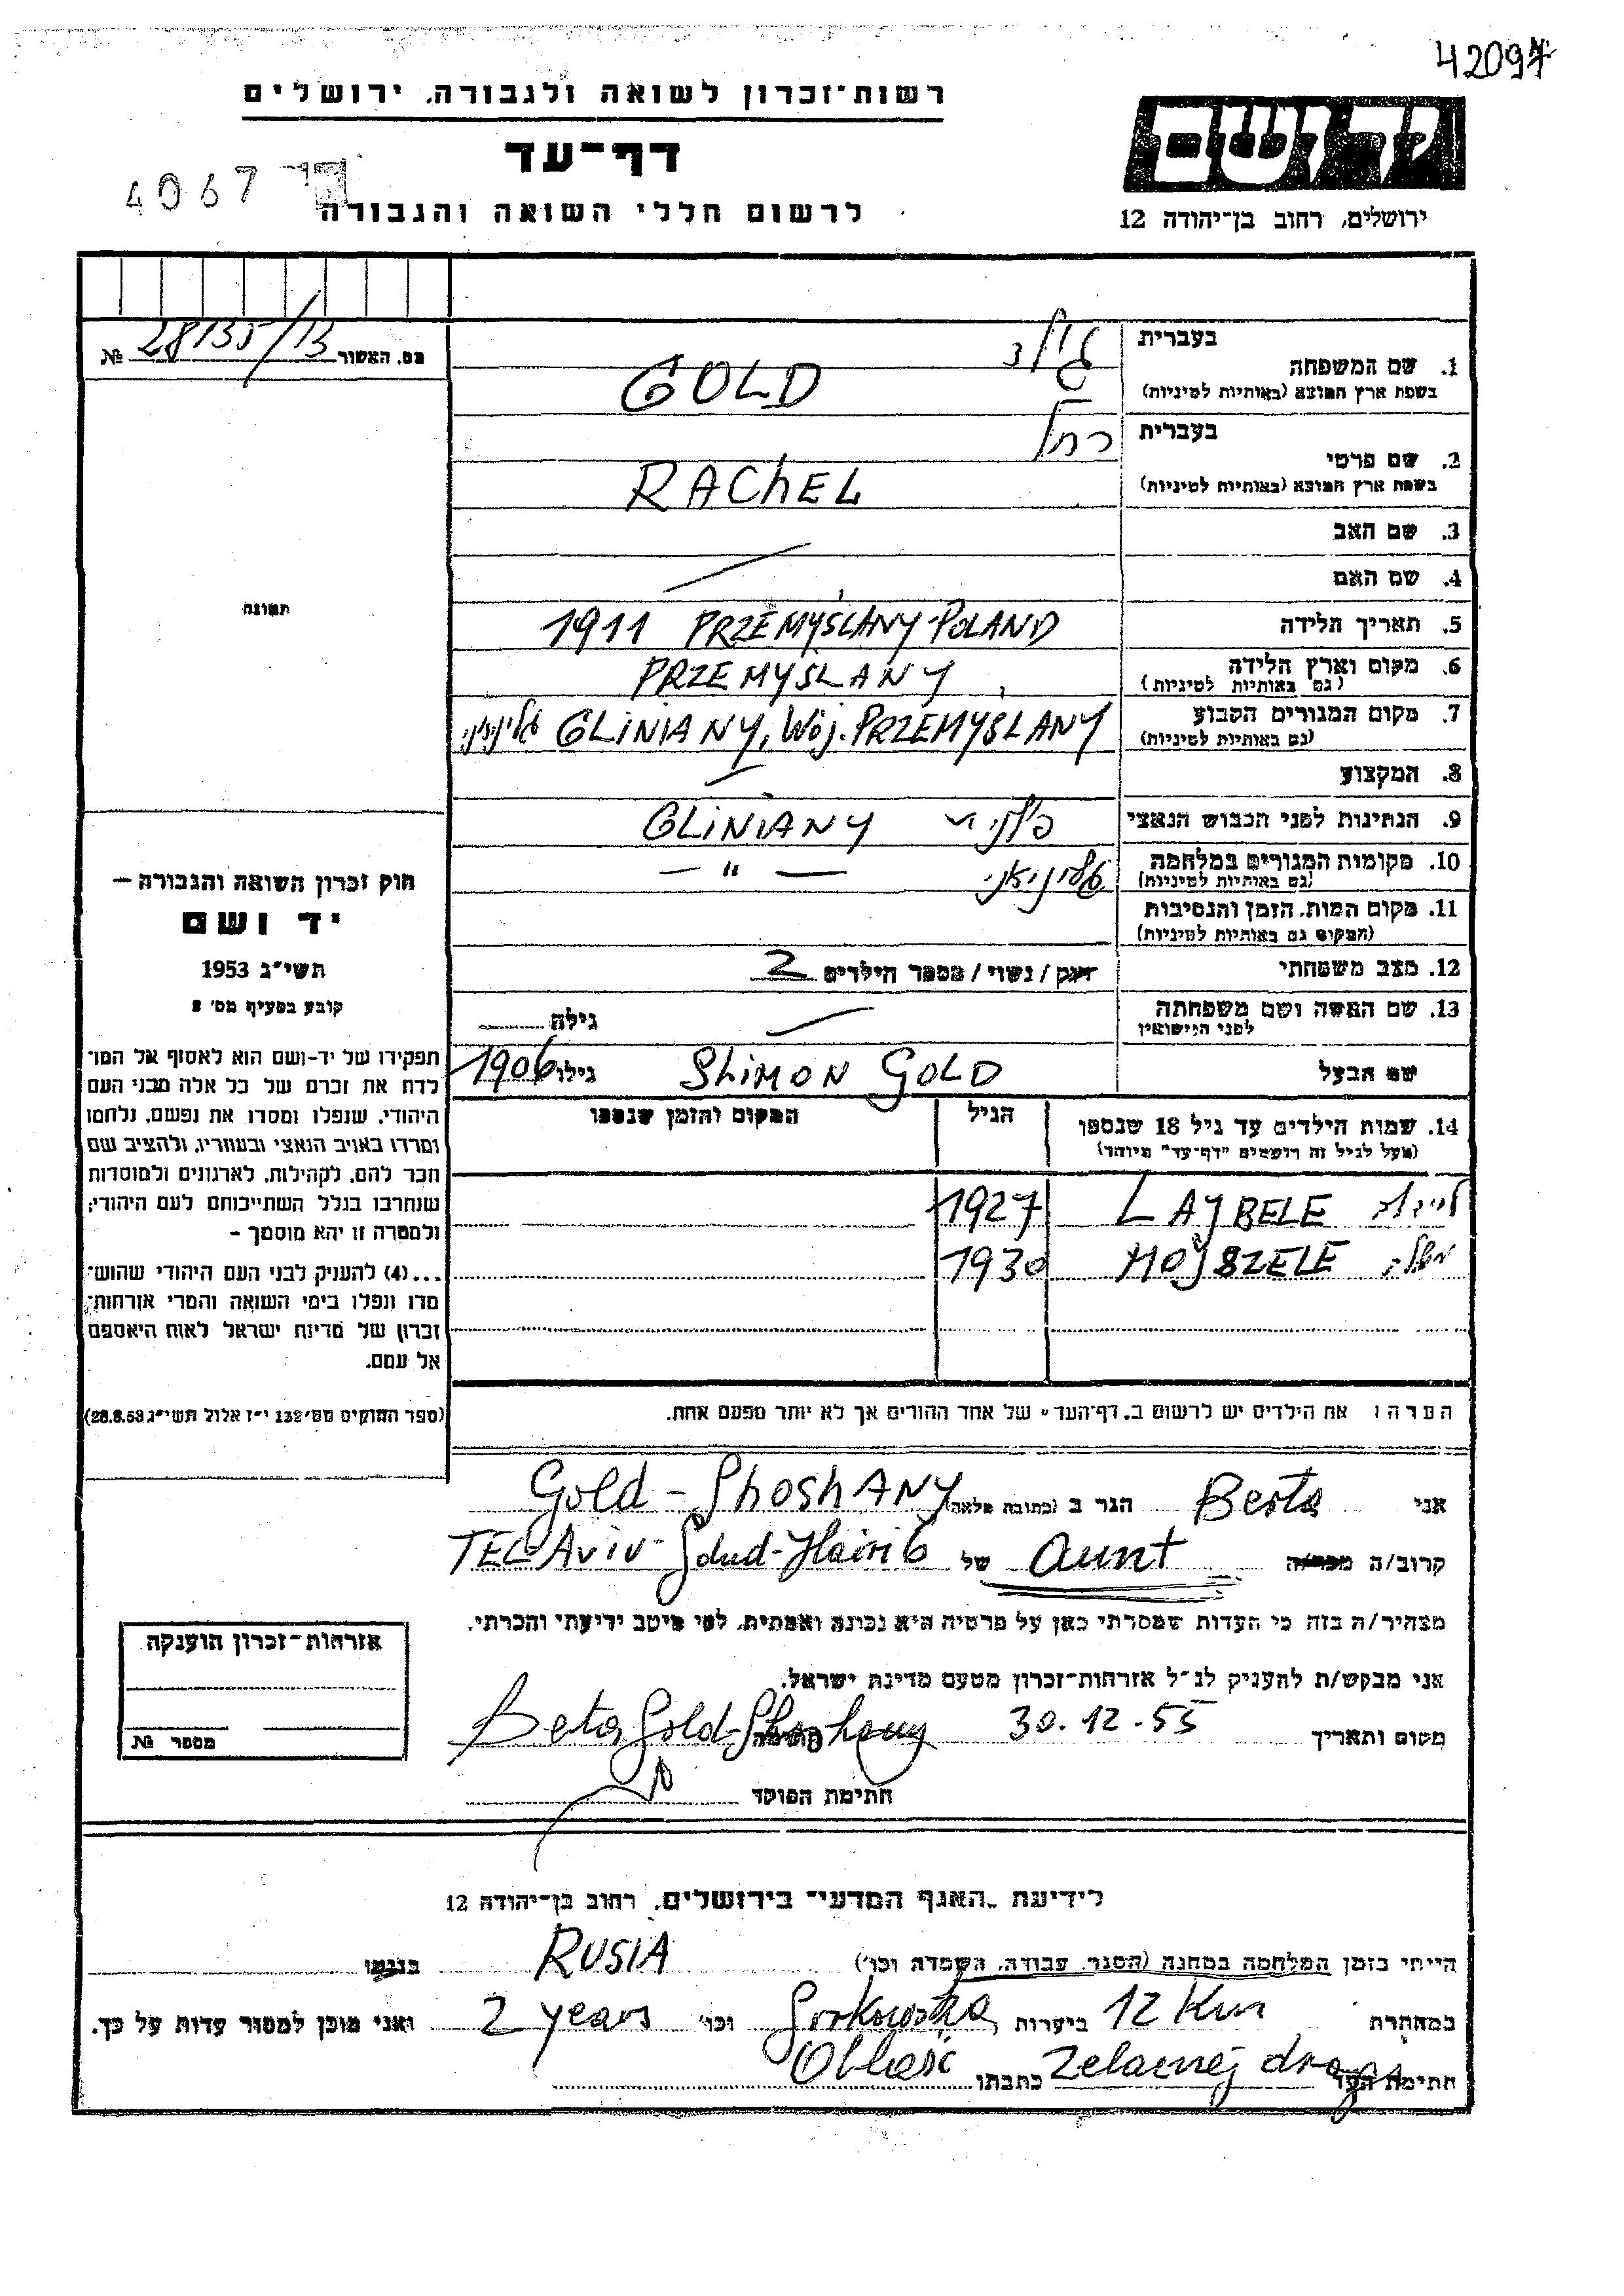 42097
רשות־זכרון לשואה ולגבורה. ירושלים
דף־עד
4067
לרשום חללי השואה והגבורה
יד ושם
ירושלים, רחוב בן־יהודה 12
מס. האשור 28135/13 №
תמונה
חוק זכרון השואה והגבורה —
יד ושם
תשי״ג 1953
קובע בסעיף מס׳ 2
תפקידו של יד-ושם הוא לאסוף אל המו־
לדת את זכרם של כל אלה מבני העם
היהודי, שנפלו ומסרו את נפשם, נלחמו
ומרדו באויב הנאצי ובעוזריו, ולהציב שם
וזכר להם, לקהילות, לארגונים ולמוסדות
שנחרבו בגלל השתייכותם לעם היהודי;
ולמטרה זו יהא מוסמך –
...(4) להעניק לבני העם היהודי שהוש־
מדו ונפלו בימי השואה והמרי אזרחות־
זכרון של מדינת ישראל לאות היאספם
אל עמם.
(ספר החוקים מס׳ 132 י״ז אלול תשי״ג 28.8.53)
בעברית גולד
1. שם המשפחה
בשפת ארץ המוצא (באותיות לטיניות) GOLD
בעברית רחל
2. שם פרטי
בשפת ארץ המוצא (באותיות לטיניות) RACHEL
3. שם האב
4. שם האם
5. תאריך הלידה 1911 PRZEMYSLANY POLAND
6. מקום וארץ הלידה PRZEMYSLANY
(גם באותיות לטיניות)
7. מקום המגורים הקבוע GLINIANY, Woj. PRZEMYSLANY
(גם באותיות לטיניות)
8. המקצוע
9. הנתינות לפני הכבוש הנאצי GLINIANY
10. מקומות המגורים במלחמה — " —
(גם באותיות לטיניות)
11. מקום המות, הזמן והנסיבות
(המקום גם באותיות לטיניות)
12. מצב משפחתי רווק / נשוי / מספר הילדים 2
13. שם האשה ושם משפחתה גילה
לפני הנישואין
שם הבעל SHIMON GOLD גילו 1906
14. שמות הילדים עד גיל 18 שנספו הגיל המקום והזמן שנספו
(מעל לגיל זה רושמים "דף־עד" מיוחד)
LAJBELE 1927
MOJSZELE משה׳לה 1930
הערה: את הילדים יש לרשום ב„דף־העד״ של אחד ההורים אך לא יותר מפעם אחת.
אני Berta הגר ב (כתובת מלאה) Gold - ShoshANY
קרוב/ה מכר/ה Aunt של TEL Aviv - Gdud-Haivri 6
מצהיר/ה בזה כי העדות שמסרתי כאן על פרטיה היא נכונה ואמתית, לפי מיטב ידיעתי והכרתי.
אני מבקש/ת להעניק לנ״ל אזרחות־זכרון מטעם מדינת ישראל.
מקום ותאריך 30.12.55 חתימה Berta Gold-Shoshany
חתימת הפוקד
אזרחות־זכרון הוענקה
מספר №
לידיעת „האגף המדעי״ בירושלים, רחוב בן־יהודה 12
הייתי בזמן המלחמה במחנה (הסגר, עבודה, השמדה וכו׳) RUSIA בגטו
במחתרת 12 Km ביערות Gorkowska וכו׳ 2 years ואני מוכן למסור עדות על כך.
חתימת העד כתבתו Oblasć